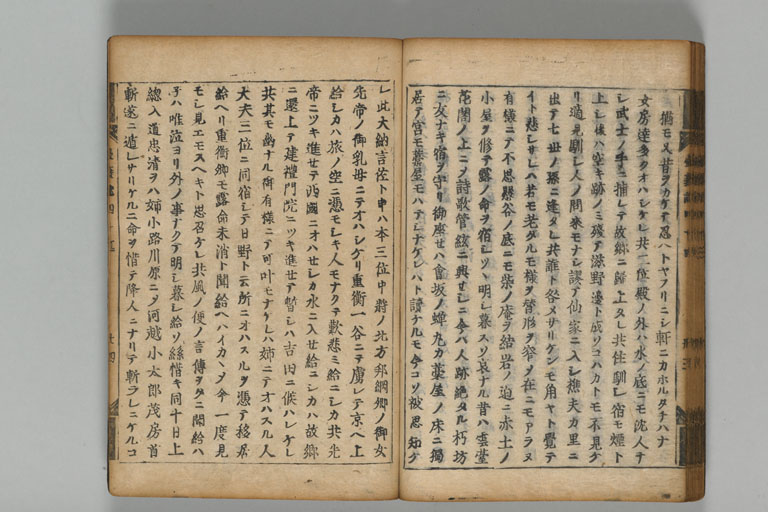 猶モ又昔ヲカケテ忍ハトヤフリニシ軒ニカホルタチハナ
女房達多クオハシケレ共二位殿ノ外ハ水ノ底ニモ沈人ナ
シ武士ノ手ニ捕レテ故郷ニ歸上タレ共住馴シ宿モ煙ト
上シ後ハ空キ跡ノミ殘テ滋野邊ト成ツヽハカトモ不見ケ
リ適見馴シ人ノ問来モナシ謬テ仙家ニ入シ樵夫カ里ニ
出テ七世ノ孫ニ逢タレ共誰ト咎メサリケンモ角ヤト覺テ
イト悲シサレハ若モ若タルモ様ヲ替形ヲ窄メ在ニモアラヌ
有様ニテ不思懸谷ノ底ニモ柴ノ庵ヲ結岩ノ迫ニ赤土ノ
小屋ヲ修テ露ノ命ヲ宿シツヽ明シ暮スソ哀ナル昔ハ雲堂
花閣ノ上ニメ詩歌管絃ニ興セシニ今ハ人跡絶タル朽坊
ニ友ナキ宿ヲ守リ御座セハ會坂ノ蝉丸カ藁屋ノ床ニ獨
居テ宮モ藁屋モハテシナケレハト讀ケルモ今コソ被思知ケ
レ此大納言佐ト申ハ本三位中將ノ北方邦綱卿ノ御女
先帝ノ御乳母ニテオハシケリ重衡一谷ニテ虜レテ京ヘ上
給シカハ旅ノ空ニ憑モシキ人モナクテ歎悲ミ給ニシカ共先
帝ニツキ進セテ西國ニオハセシカ水ニ入セ給ニシカハ故郷
ニ還上テ建禮門院ニツキ進セテ暫シハ吉田ニ候ハレケレ
共其モ幽ナル御有様ニテ可叶モナケレハ姉ニテオハスル人
大夫三位ニ同宿シテ日野ト云所ニオハスルヲ憑テ移居
給ヘリ重衡卿モ露命未消ト聞給ヘハイカヽメ今一度見
モシ見エモスヘキト思召ケレ共風ノ便ノ言傳ヲタニ聞給ハ
子ハ唯泣ヨリ外ノ事ナクテ明シ暮シ給ソ糸惜キ同十日上
總入道忠清ヲハ姉小路川原ニメ河越小太郎茂房首
斬遂ニ遁レサリケルニ命ヲ惜テ降人ニナリテ斬ラレニケルコ